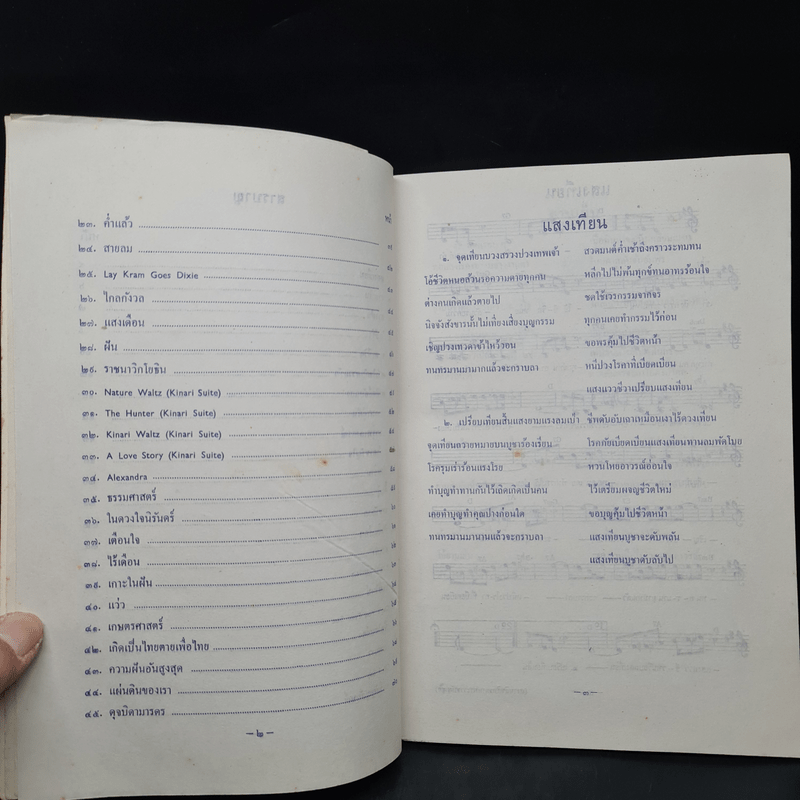 สารบาญ
หน้า
๒๓. ค่ำแล้ว
๒๔. สายลม
๒๕. Lay Kram Goes Dixie
๒๖. ไกลกังวล
๒๗. แสงเดือน
๒๘. ฝัน
๒๙. ราชนาวิกโยธิน
๓๐. Nature Waltz (Kinari Suite)
๓๑. The Hunter (Kinari Suite)
๓๒. Kinari Waltz (Kinari Suite)
๓๓. A Love Story (Kinari Suite)
๓๔. Alexandra
๓๕. ธรรมศาสตร์
๓๖. ในดวงใจนิรันดร์
๓๗. เตือนใจ
๓๘. ไร้เดือน
๓๙. เกาะในฝัน
๔๐. แว่ว
๔๑. เกษตรศาสตร์
๔๒. เกิดเป็นไทยตายเพื่อไทย
๔๓. ความฝันอันสูงสุด
๔๔. แผ่นดินของเรา
๔๕. ดุจบิดามารดร
—๒—
แสงเทียน
๑. จุดเทียนบวงสรวงปวงเทพเจ้า สวดมนต์ค่ำเช้าถึงคราวระทมทน
โอ้ชีวิตหนอล้วนรอความตายทุกคน หลีกไปไม่พ้นทุกข์ทนอาทรร้อนใจ
ต่างคนเกิดแล้วตายไป ชดใช้เวรกรรมจากจร
นิจจังสังขารนั้นไม่เที่ยงเสี่ยงบุญกรรม ทุกคนเคยทำกรรมไว้ก่อน
เชิญปวงเทวดาข้าไหว้วอน ขอพรคุ้มไปชีวิตหน้า
ทนทรมานมามากแล้วจะกราบลา หนีปวงโรคาที่เบียดเบียน
แสงแววชีวาเปรียบแสงเทียน
๒. เปรียบเทียนสิ้นแสงยามแรงลมเป่า ชีพดับอับเฉาเหมือนเงาไร้ดวงเทียน
จุดเทียนถวายหมายบนบูชาร้องเรียน โรคภัยเบียดเบียนแสงเทียนทานลมพัดโบย
โรครุมเร่าร้อนแรงโรย หวนโหยอาวรณ์อ่อนใจ
ทำบุญทำทานกันไว้เถิดเกิดเป็นคน ไว้เตรียมผจญชีวิตใหม่
เคยทำบุญทำคุณปางก่อนใด ขอบุญคุ้มไปชีวิตหน้า
ทนทรมานมานานแล้วจะกราบลา แสงเทียนบูชาจะดับพลัน
แสงเทียนบูชาดับลับไป
—๓—